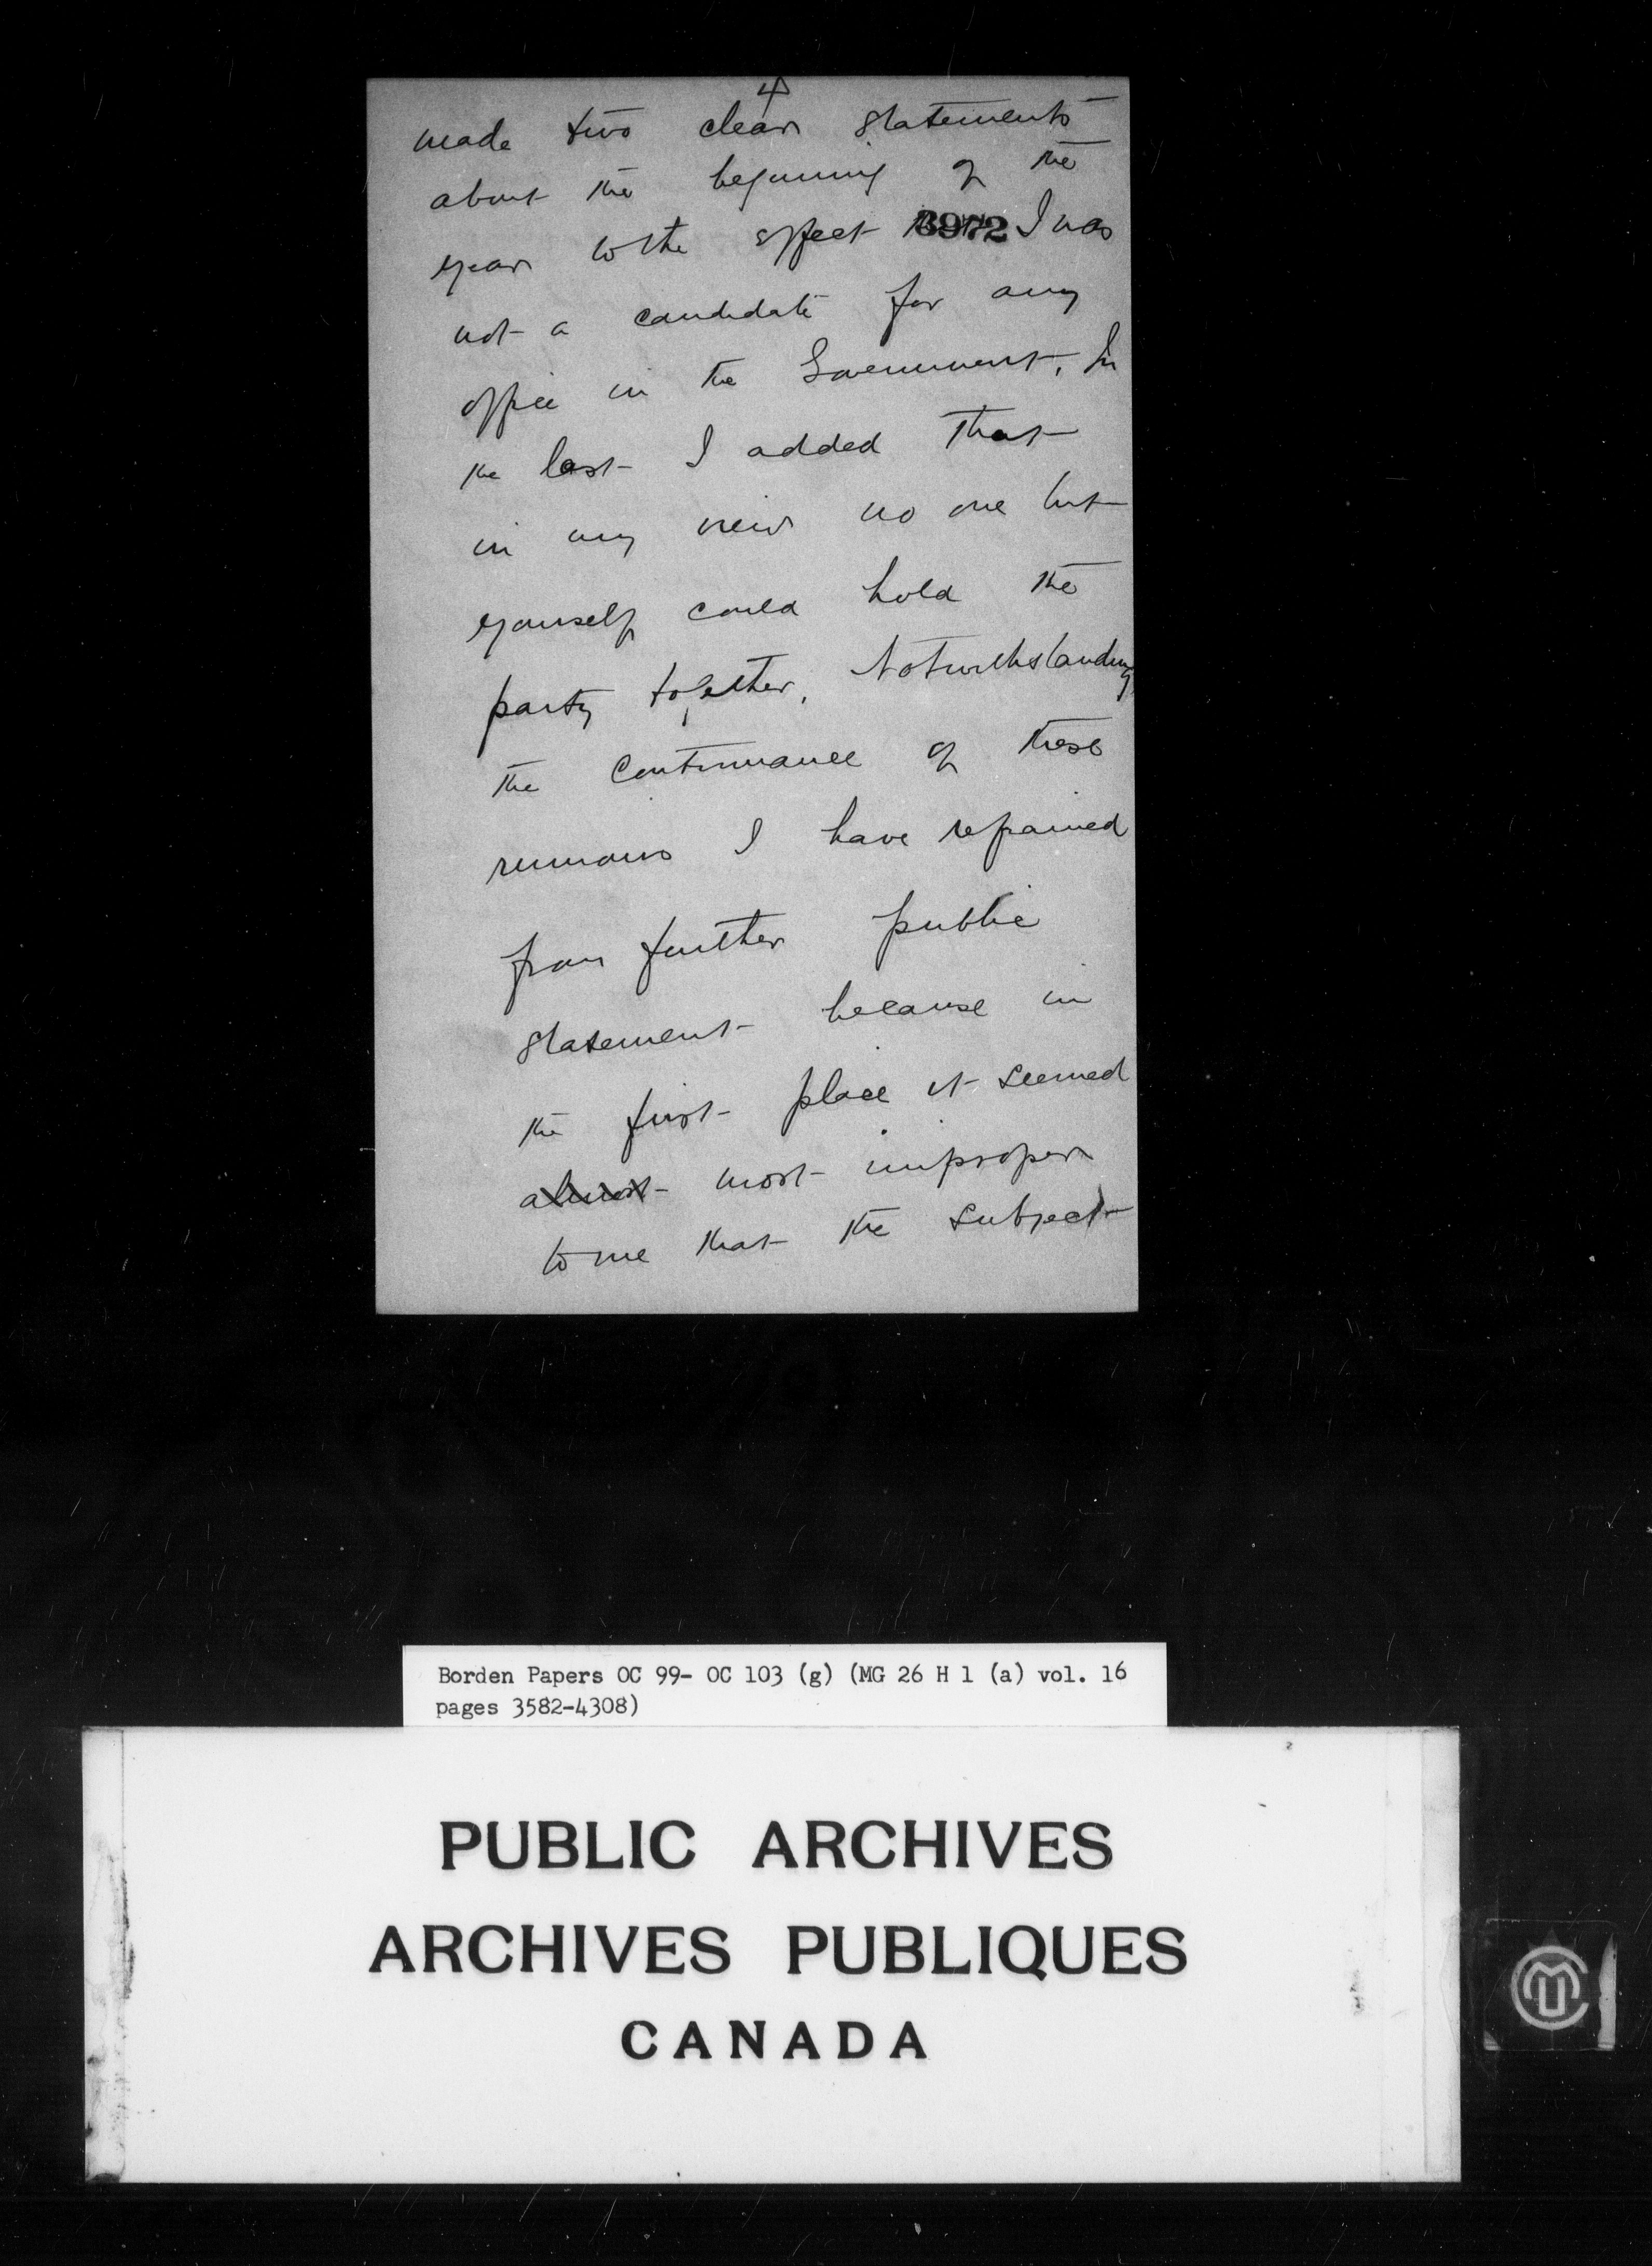 4
made two clear statements
about the beginning of the
year to the effect that I was
3972
not a candidate for any
office in the Government. In
the last I added that
in my view no one but
yourself could hold the
party together. Notwithstanding
the continuance of these
rumours I have refrained
from further public
statement because in
the first place it seemed
almost most improper
to me that the subject
Borden Papers OC 99- OC 103 (g) (MG 26 H 1 (a) vol. 16
pages 3582-4308)
PUBLIC ARCHIVES
ARCHIVES PUBLIQUES
CANADA